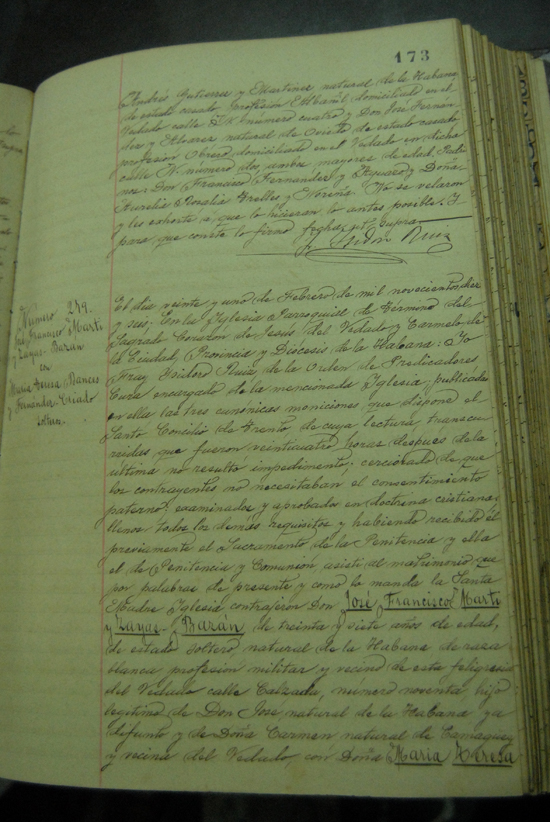 173
Andrés Gutierrez y Martinez natural de la Habana
de estado casado profesión Albañil domiciliado en el
Vedado calle número cuatro y Don José Fernán
dez y Alvarez natural de Oviedo de estado casado
profesión Obrero domiciliado en el Vedado en dicha
calle N. número dos, ambos mayores de edad. Padri
nos: Don Francisco Fernandez y Doña
Aurelia Rosalia y Noreña. No se velaron
y les exhorté a que lo hicieran lo antes posible. Y
para que conste lo firmo fecha ut supra
Fr. Isidoro Ruiz
Número 249.
José Francisco Marti
y Zayas Bazán
con
Maria Teresa Bances
y Fernández Criado
El día veinte y uno de Febrero de mil novecientos diez
y seis: En la Yglesia Parroquial de término del
Sagrado Corazón de Jesus del Vedado y Carmelo de
la Ciudad, Provincia y Diócesis de la Habana: Yo
Fray Isidoro Ruiz de la Orden de Predicadores
Cura encargado de la mencionada Yglesia, publicadas
en ella las tres canónicas moniciones que dispone el
Santo Concilio de Trento de cuya lectura, transcu
rridas que fueron veinticuatro horas despues de la
ultima no resultó impedimento; cerciorado de que
los contrayentes no necesitaban el consentimiento
paterno, examinados y aprobados en doctrina cristiana,
llenos todos los demas requisitos y habiendo recibido él
previamente el Sacramento de la Penitencia y ella
el de Penitencia y Comunión asistí al matrimonio que
por palabras de presente y como lo manda la Santa
Madre Yglesia contrajeron Don José Francisco Marti
y Zayas Bazán de treinta y siete años de edad,
de estado soltero, natural de la Habana de raza
blanca profesión militar y vecino de esta feligresia
del Vedado calle Calzada, número noventa hijo
legítimo de Don José natural de la Habana ya
difunto y de Doña Carmen natural de Camagüey
y vecina del Vedado, con Doña Maria Teresa